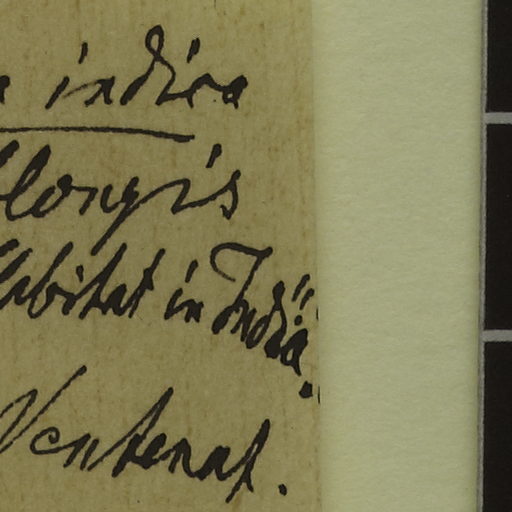 indica
longis
Habitat in India.
Ventenat.